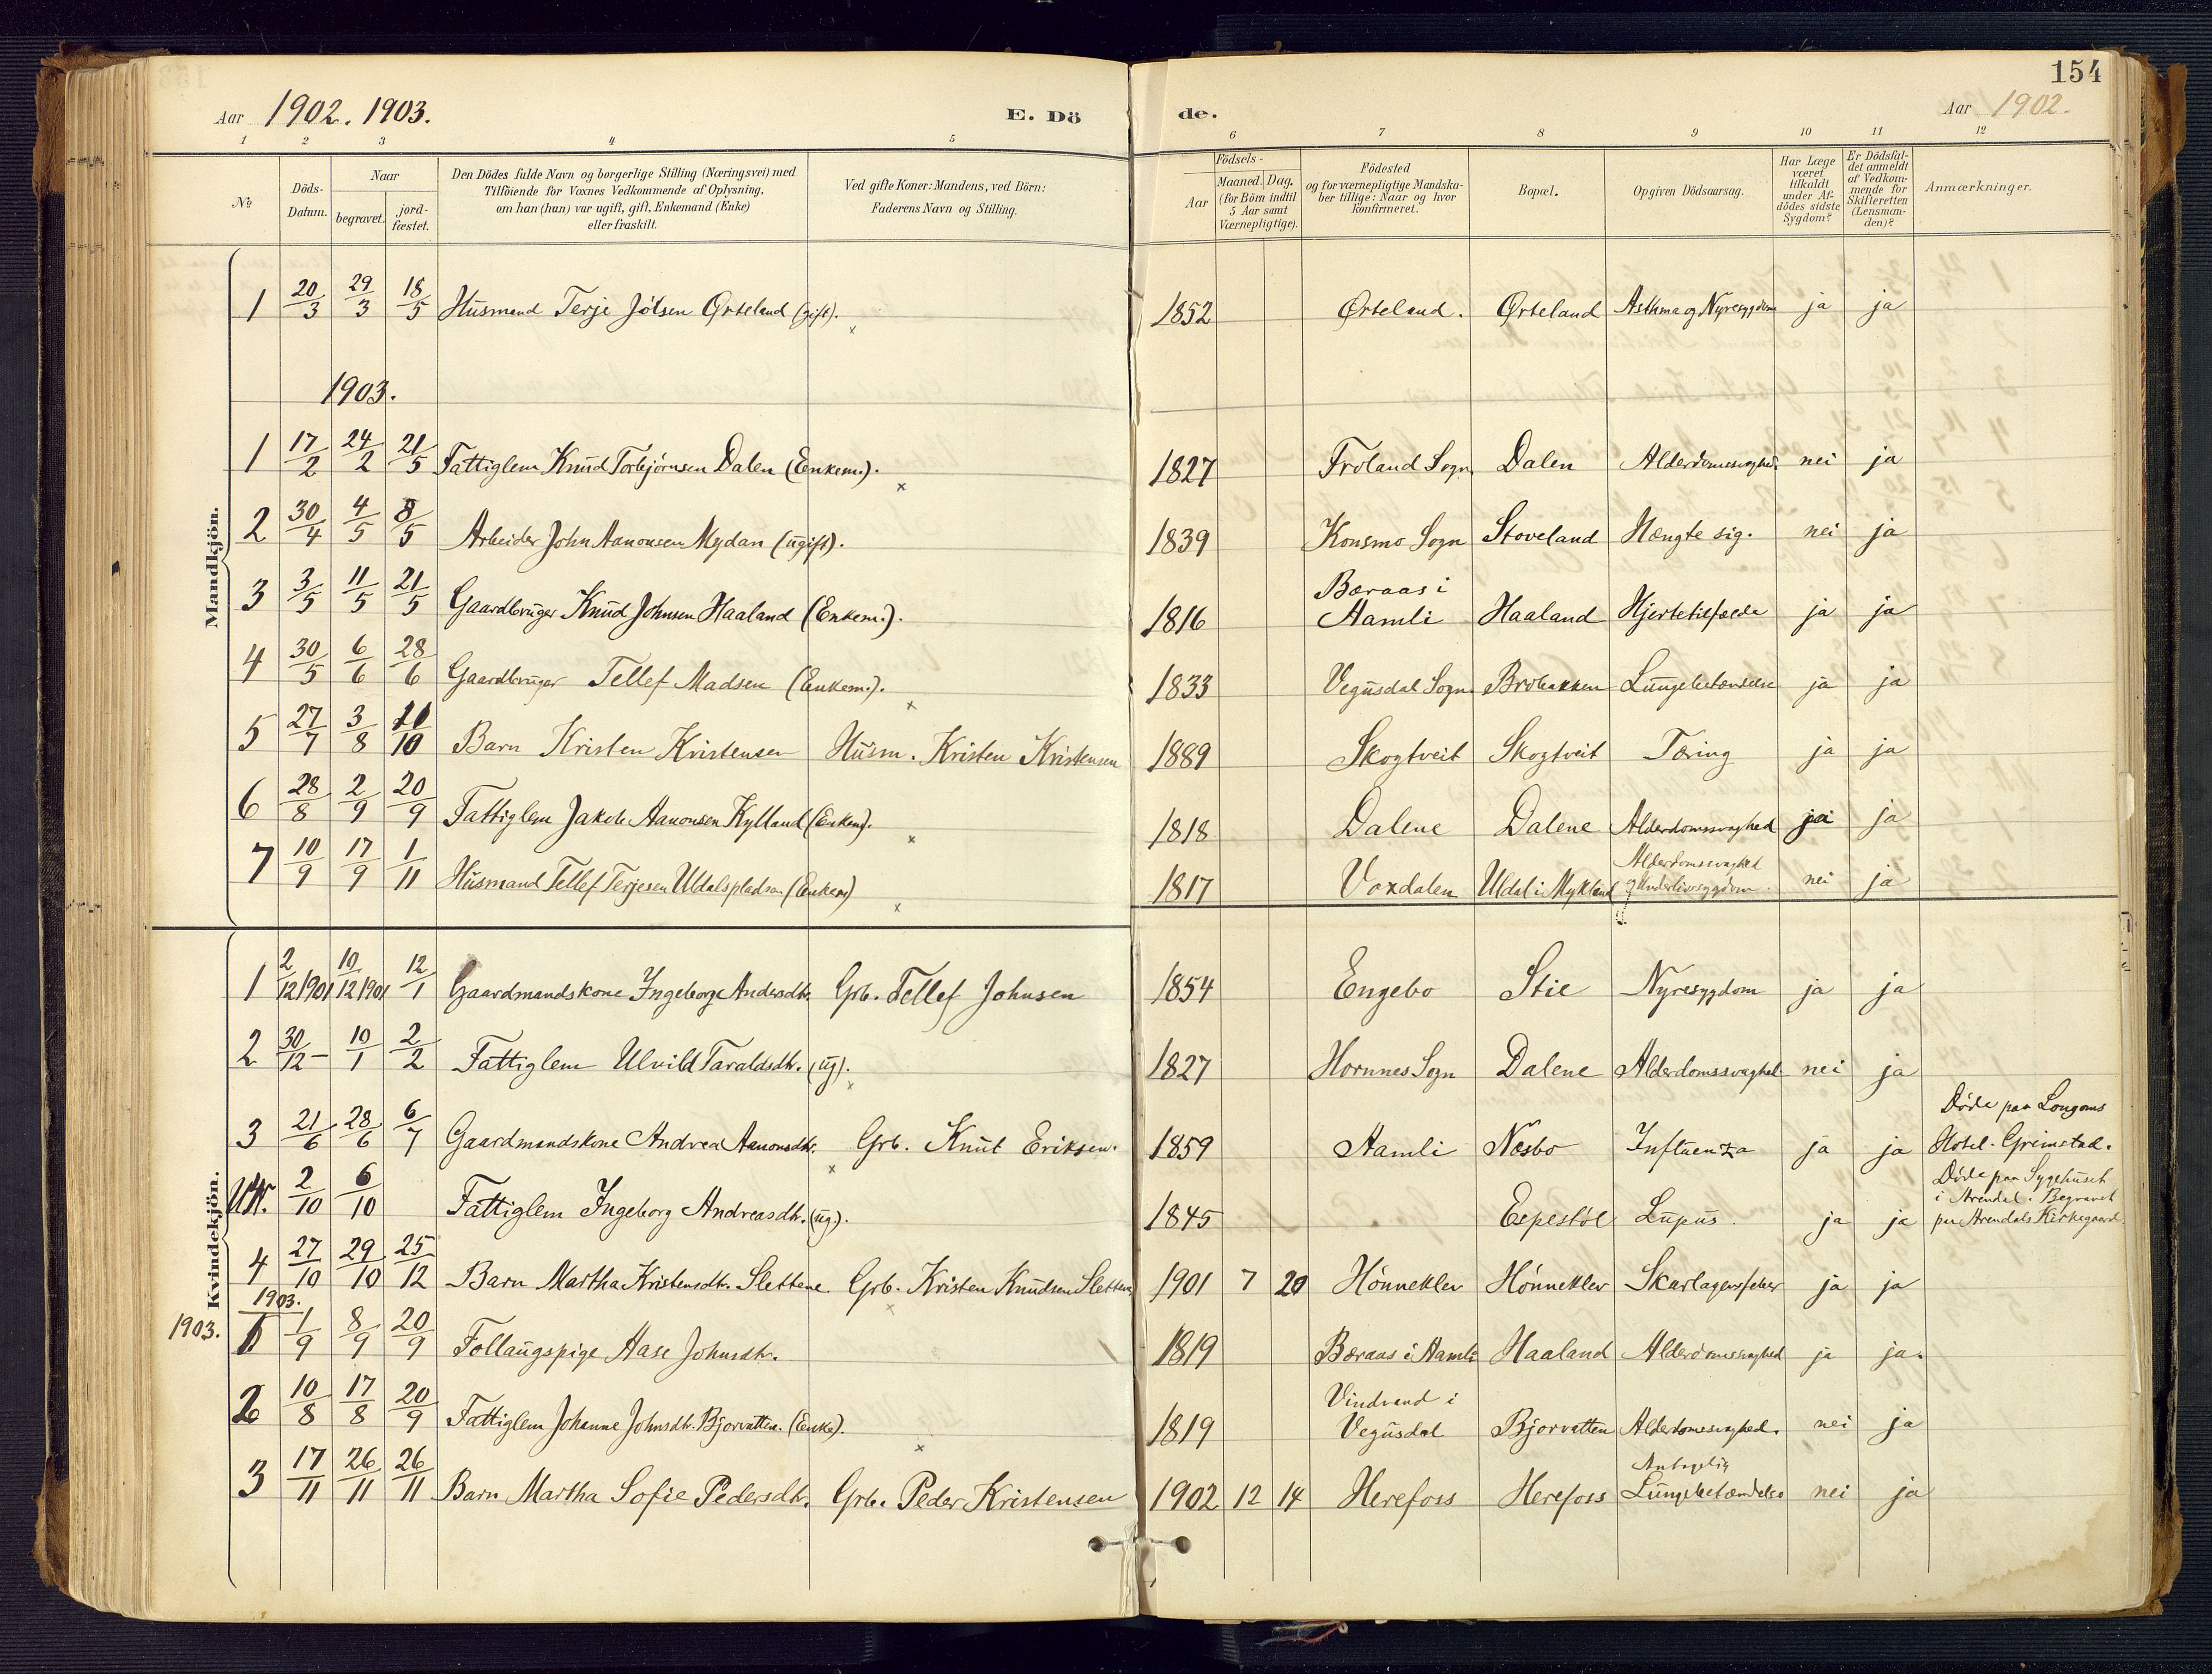 154
Aar 1902. 1903. E. Dö de. Aar 1902.
1 2 3 4 5 6 7 8 9 10 11 12
№
Döds-
Datum.
Naar
begravet.
jord-
fæstet.
Den Dödes fulde Navn og borgerlige Stilling (Næringsvei) med
Tilföiende for Voxnes Vedkommende af Oplysning,
om han (hun) var ugift, gift, Enkemand (Enke)
eller fraskilt.
Ved gifte Koner: Mandens, ved Börn:
Faderens Navn og Stilling.
Födsels-
Aar
Maaned. Dag.
(for Börn indtil
5 Aar samt
Værnepligtige).
Födested
og for værnepligtige Mandska-
ber tillige: Naar og hvor
konfirmeret.
Bopæl.
Opgiven Dödsaarsag.
Har Læge
været
tilkaldt
under Af-
dödes sidste
Sygdom?
Er Dödsfal-
det anmeldt
af Vedkom-
mende for
Skifteretten
(Lensman-
den)?
Anmærkninger.
Mandkjön.
1 20/3 29/3 18/5 Husmand Terje Jölsen Ørteland (gift). x 1852 Ørteland. Ørteland Asthma og Nyresygdom ja ja
1903.
1 17/2 24/2 21/5 Fattiglem Knud Torbjörnsen Dalen (Enkem.). x 1827 Froland Sogn Dalen Alderdomssvaghed. nei ja
2 30/4 4/5 8/5 Arbeider John Aanonsen Mydan (ugift). 1839 Konsmo Sogn Stoveland Hængte sig. nei ja
3 3/5 11/5 21/5 Gaardbruger Knud Johnsen Haaland (Enkem.). 1816 Baraas i
Aamli Haaland Hjertetilfælde ja ja
4 30/5 6/6 28/6 Gaardbruger Tellef Madsen (Enkem.). x 1833 Vegusdal Sogn Brobakken Lungebetændelse ja ja
5 27/7 3/8 11/10 Barn Kristen Kristensen Husm. Kristen Kristensen 1889 Skogtveit Skogtveit Tæring ja ja
6 28/8 2/9 20/9 Fattiglem Jakob Aanonsen Kylland (Enkem). x 1818 Dalene Dalene Alderdomssvaghed ja ja
7 10/9 17/9 1/11 Husmand Tellef Terjesen Uldalspladsen (Enkem) x 1817 Voxdalen Uldal i Mykland Alderdomssvaghed
og Underlivssygdom. nei ja
Kvindekjön.
1 2/12 1901 10/12 1901 12/1 Gaardmandskone Ingeborg Andersdtr. Grb. Tellef Johnsen 1854 Engebo Stie Nyresygdom ja ja
2 30/12 – 10/1 2/2 Fattiglem Ulvild Taraldsdtr. (ug). x 1827 Hornnes Sogn Dalene Alderdomssvaghed nei ja
3 21/6 28/6 6/7 Gaardmandskone Andrea Aanonsdtr. x Grb. Knut Eriksen. 1859 Aamli Næsbo Influenza ja ja Döde paa Longoms
Hotel. Grimstad.
2/10 6/10 Fattiglem Ingeborg Andreasdtr. (ug.). 1845 Espestöl Lupus. ja ja Döde paa Sygehuset
i Arendal. Begravet
paa Arendals Kirkegaard.
4 27/10 29/10 25/12 Barn Martha Kristensdtr. Slettene Grb. Kristen Knudsen Slettene x 1901 7 20 Hönneklev Hönneklev Skarlagensfeber ja ja
1903.
1903. 1 1/9 8/9 20/9 Follaugspige Aase Johnsdtr. 1819 Baraas i Aamli Haaland Alderdomssvaghed ja ja.
2 10/8 17/8 20/9 Fattiglem Johanne Johnsdtr. Bjorvatten. (Enke). x 1819 Vindvand i
Vegusdal Bjorvatten Alderdomssvaghed. nei ja
3 17/11 26/11 26/11 Barn Martha Sofie Pedersdtr. Grb. Peder Kristensen 1902 12 14 Herefoss Herefoss Antagelig
Lungebetændelse nei ja